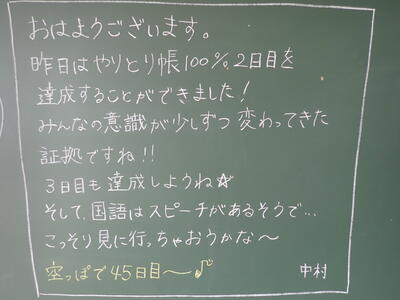 おはようございます。
昨日はやりとり帳100%2日目を
達成することができました!
みんなの意識が少しずつ変わってきた
証拠ですね!!
3日目も達成しようね☆
そして、国語はスピーチがあるそうで…
こっそり見に行っちゃおうかな〜
空っぽで45日目〜♪
中村